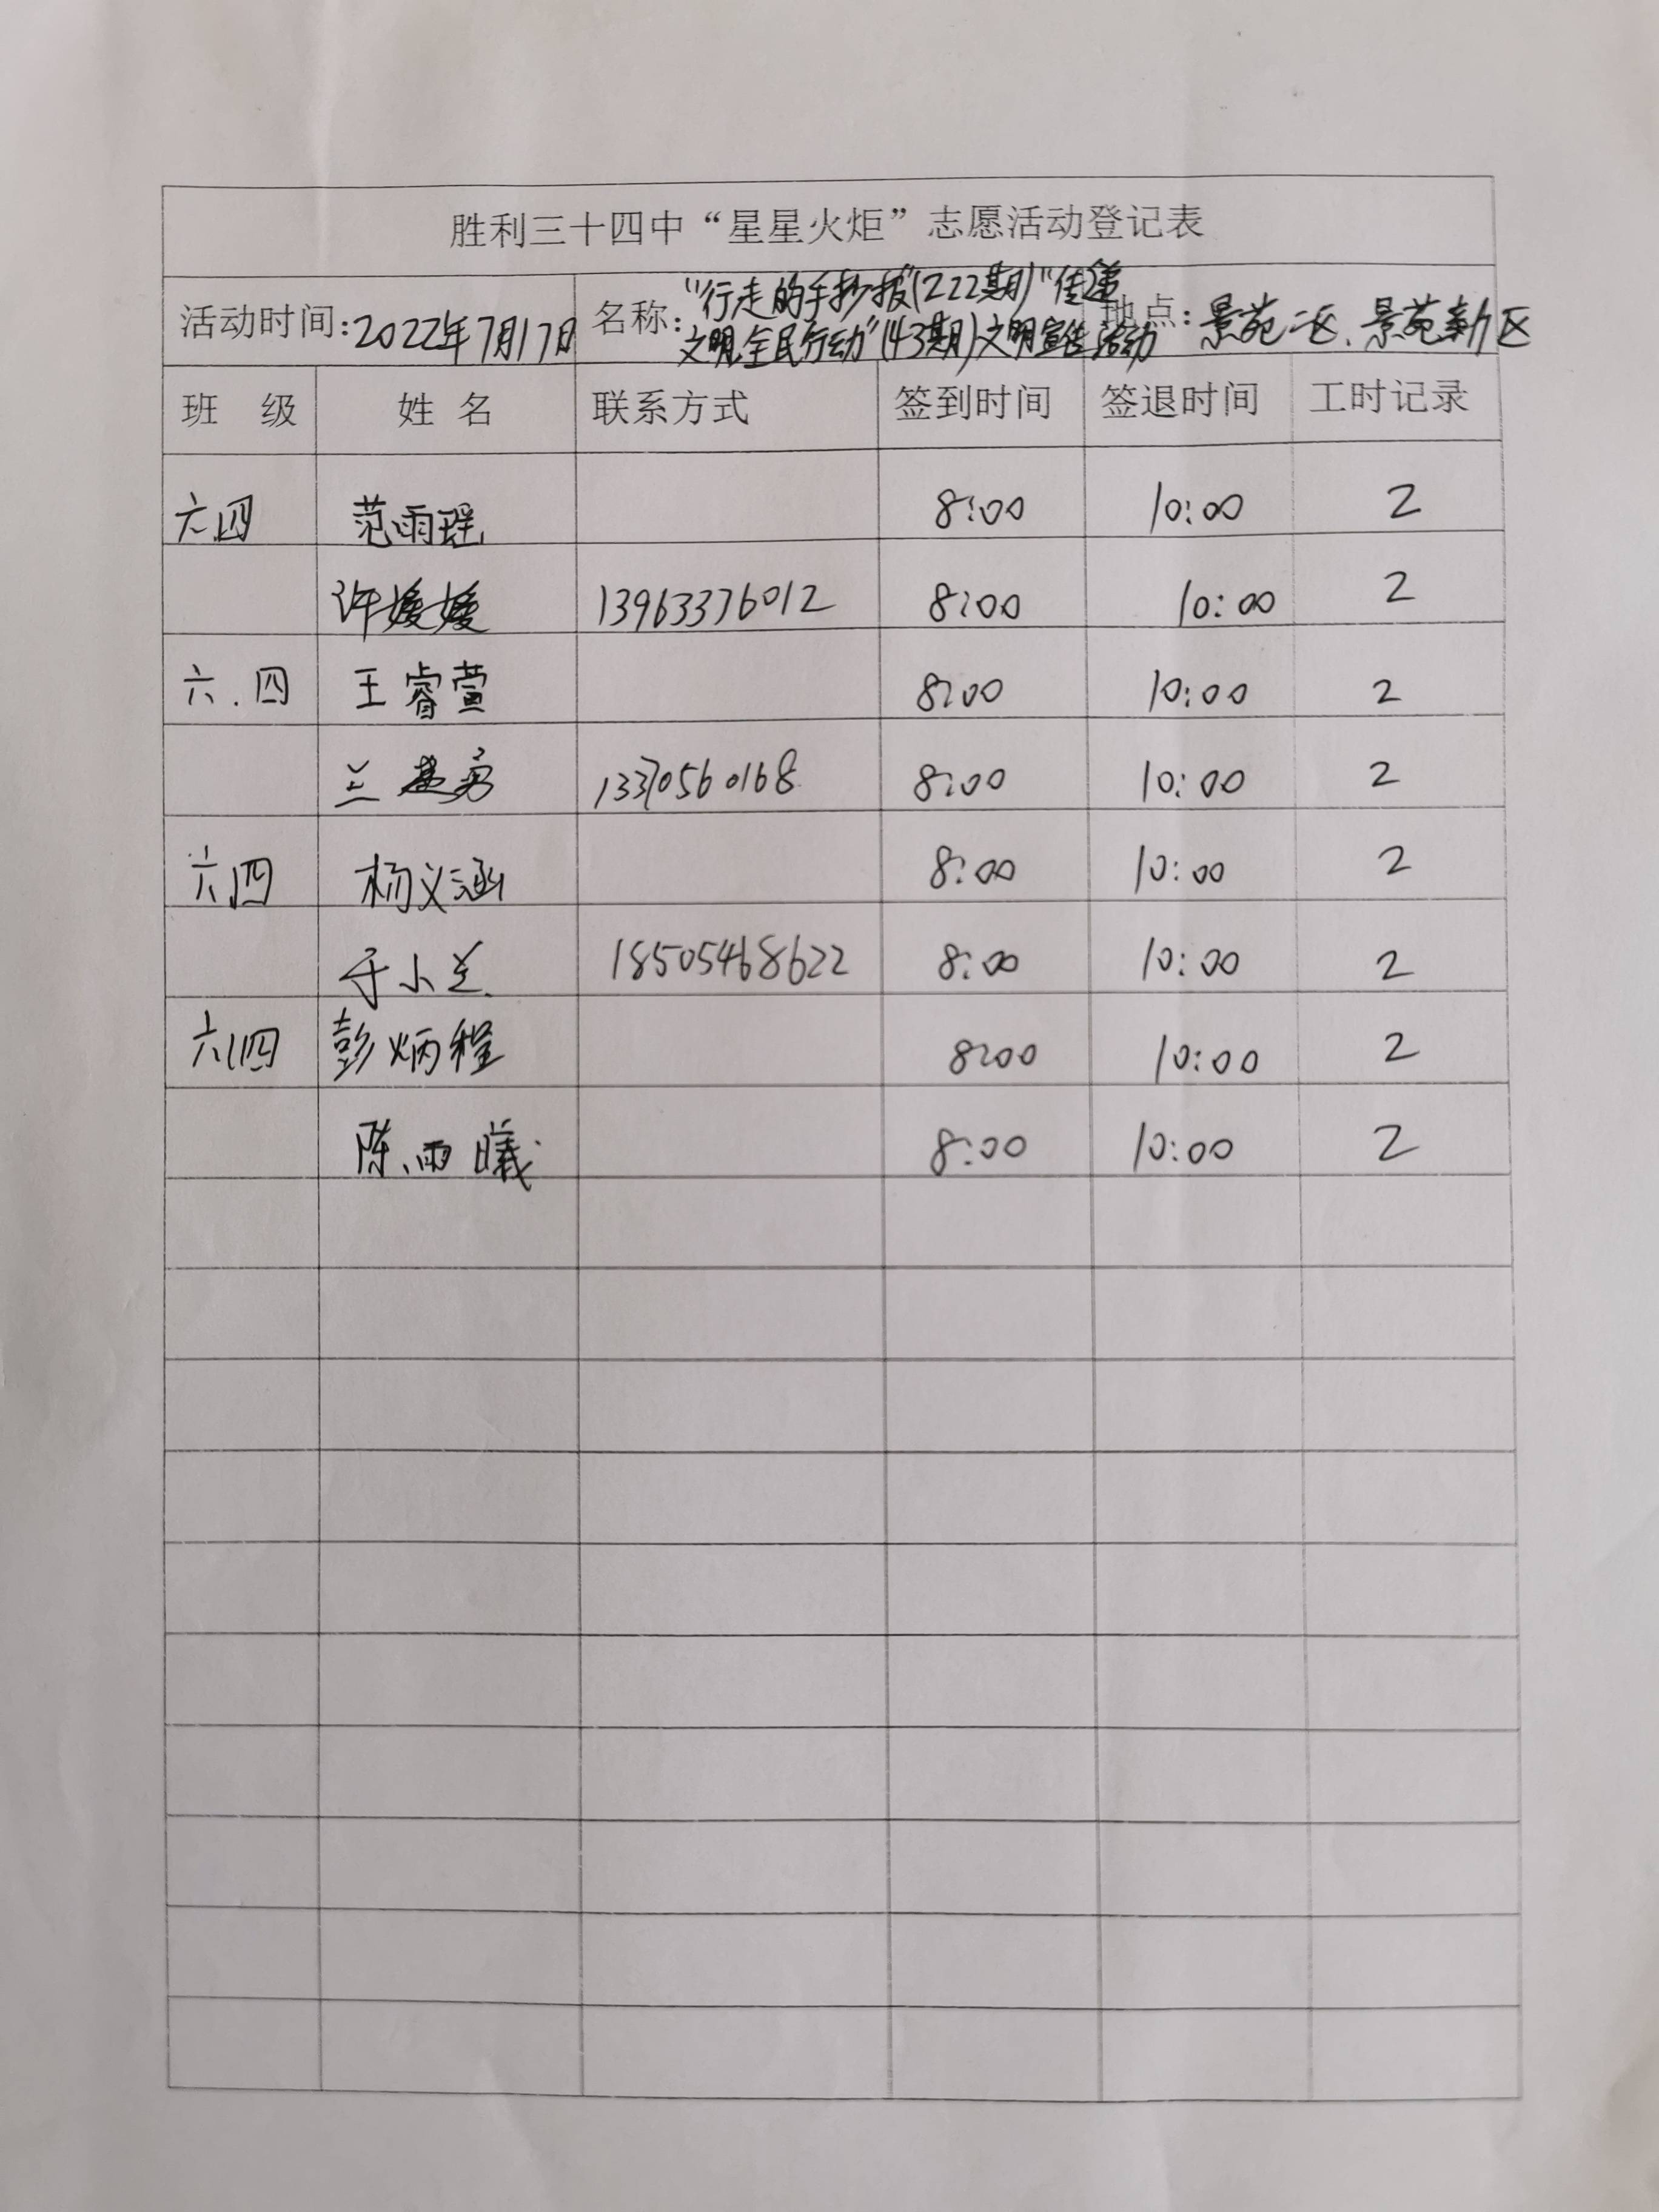 胜利三十四中“星星火炬”志愿活动登记表
活动时间:2022年7月17日 名称:“行走的手抄报”(222期)“传递 地点:景苑二区、景苑新区
文明,全民行动”(43期)文明宣传活动
班 级 姓 名 联系方式 签到时间 签退时间 工时记录
六.四 范雨瑶 8:00 10:00 2
许媛媛 13963376012 8:00 10:00 2
六.四 王睿萱 8:00 10:00 2
兰 勇 13370560168 8:00 10:00 2
六.四 杨义涵 8:00 10:00 2
于小兰 18505468622 8:00 10:00 2
六.四 彭炳程 8:00 10:00 2
陈雨曦 8:00 10:00 2